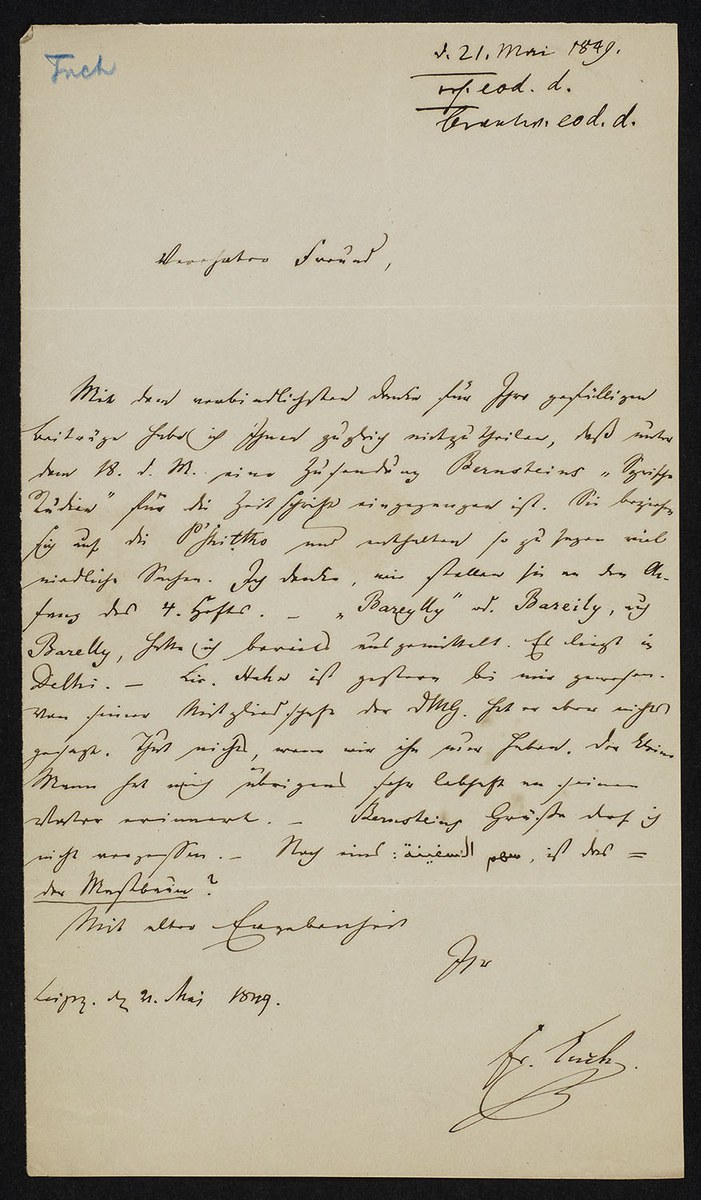 Tuch
d. 21. Mai 1849.
eod. d.
Beantw. eod. d.
Verehrter Freund,
Mit dem verbindlichsten Danke für Ihre gefälligen
Beiträge habe ich Ihnen zugleich mitzutheilen, daß unter
dem 18. d. M. eine Zusendung Bernsteins „Syrische
Studien“ für die Zeitschrift eingegangen ist. Sie beziehn
sich auf die und enthalten so zu sagen viel
niedliche Sachen. Ich denke, wir stellen sie an den An-
fang des 4. Hefts. – „Bareylly“ od. Bareily, auch
Barelly, hatte ich bereits ausgemittelt. Es liegt in
Delhi. – Lic. Hahn ist gestern bei mir gewesen.
Von seiner Mitgliedschaft der DMG. hat er aber nichts
gesagt. Thut nichts, wenn wir ihn nur haben. Der kleine
Mann hat mich übrigens sehr lebhaft an seinen
Vater erinnert. – Bernsteins Grüße darf ich
nicht vergessen. – Noch eins: , ist das =
der Mastbaum?
Mit alter Ergebenheit
Ihr
Leipz. d. 21. Mai 1849.
Fr. Tuch.